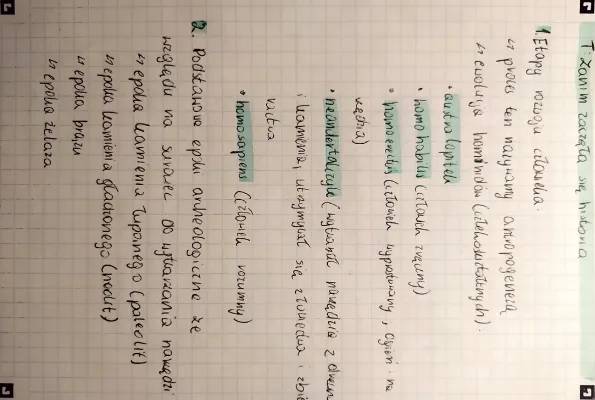 T: Zanim zaczęła się historia
1. Etapy rozwoju człowieka.
↳ proces ten nazywamy antropogenezą
↳ ewolucja hominidów (człekokształtnych):
• australopitek
• homo habilis (człowiek zręczny)
• homo erectus (człowiek wyprostowany, ogień, na
• neandertalczyk (wytwarzał narzędzia z drewn
i kamienia, utrzymywał się z łowiectwa i zbie
ractwa
• homo sapiens (człowiek rozumny)
2. Podstawowe epoki archeologiczne ze
względu na surowiec do wytwarzania narzędzi
↳ epoka kamienia łupanego (paleolit)
↳ epoka kamienia gładzonego (neolit)
↳ epoka brązu
↳ epoka żelaza